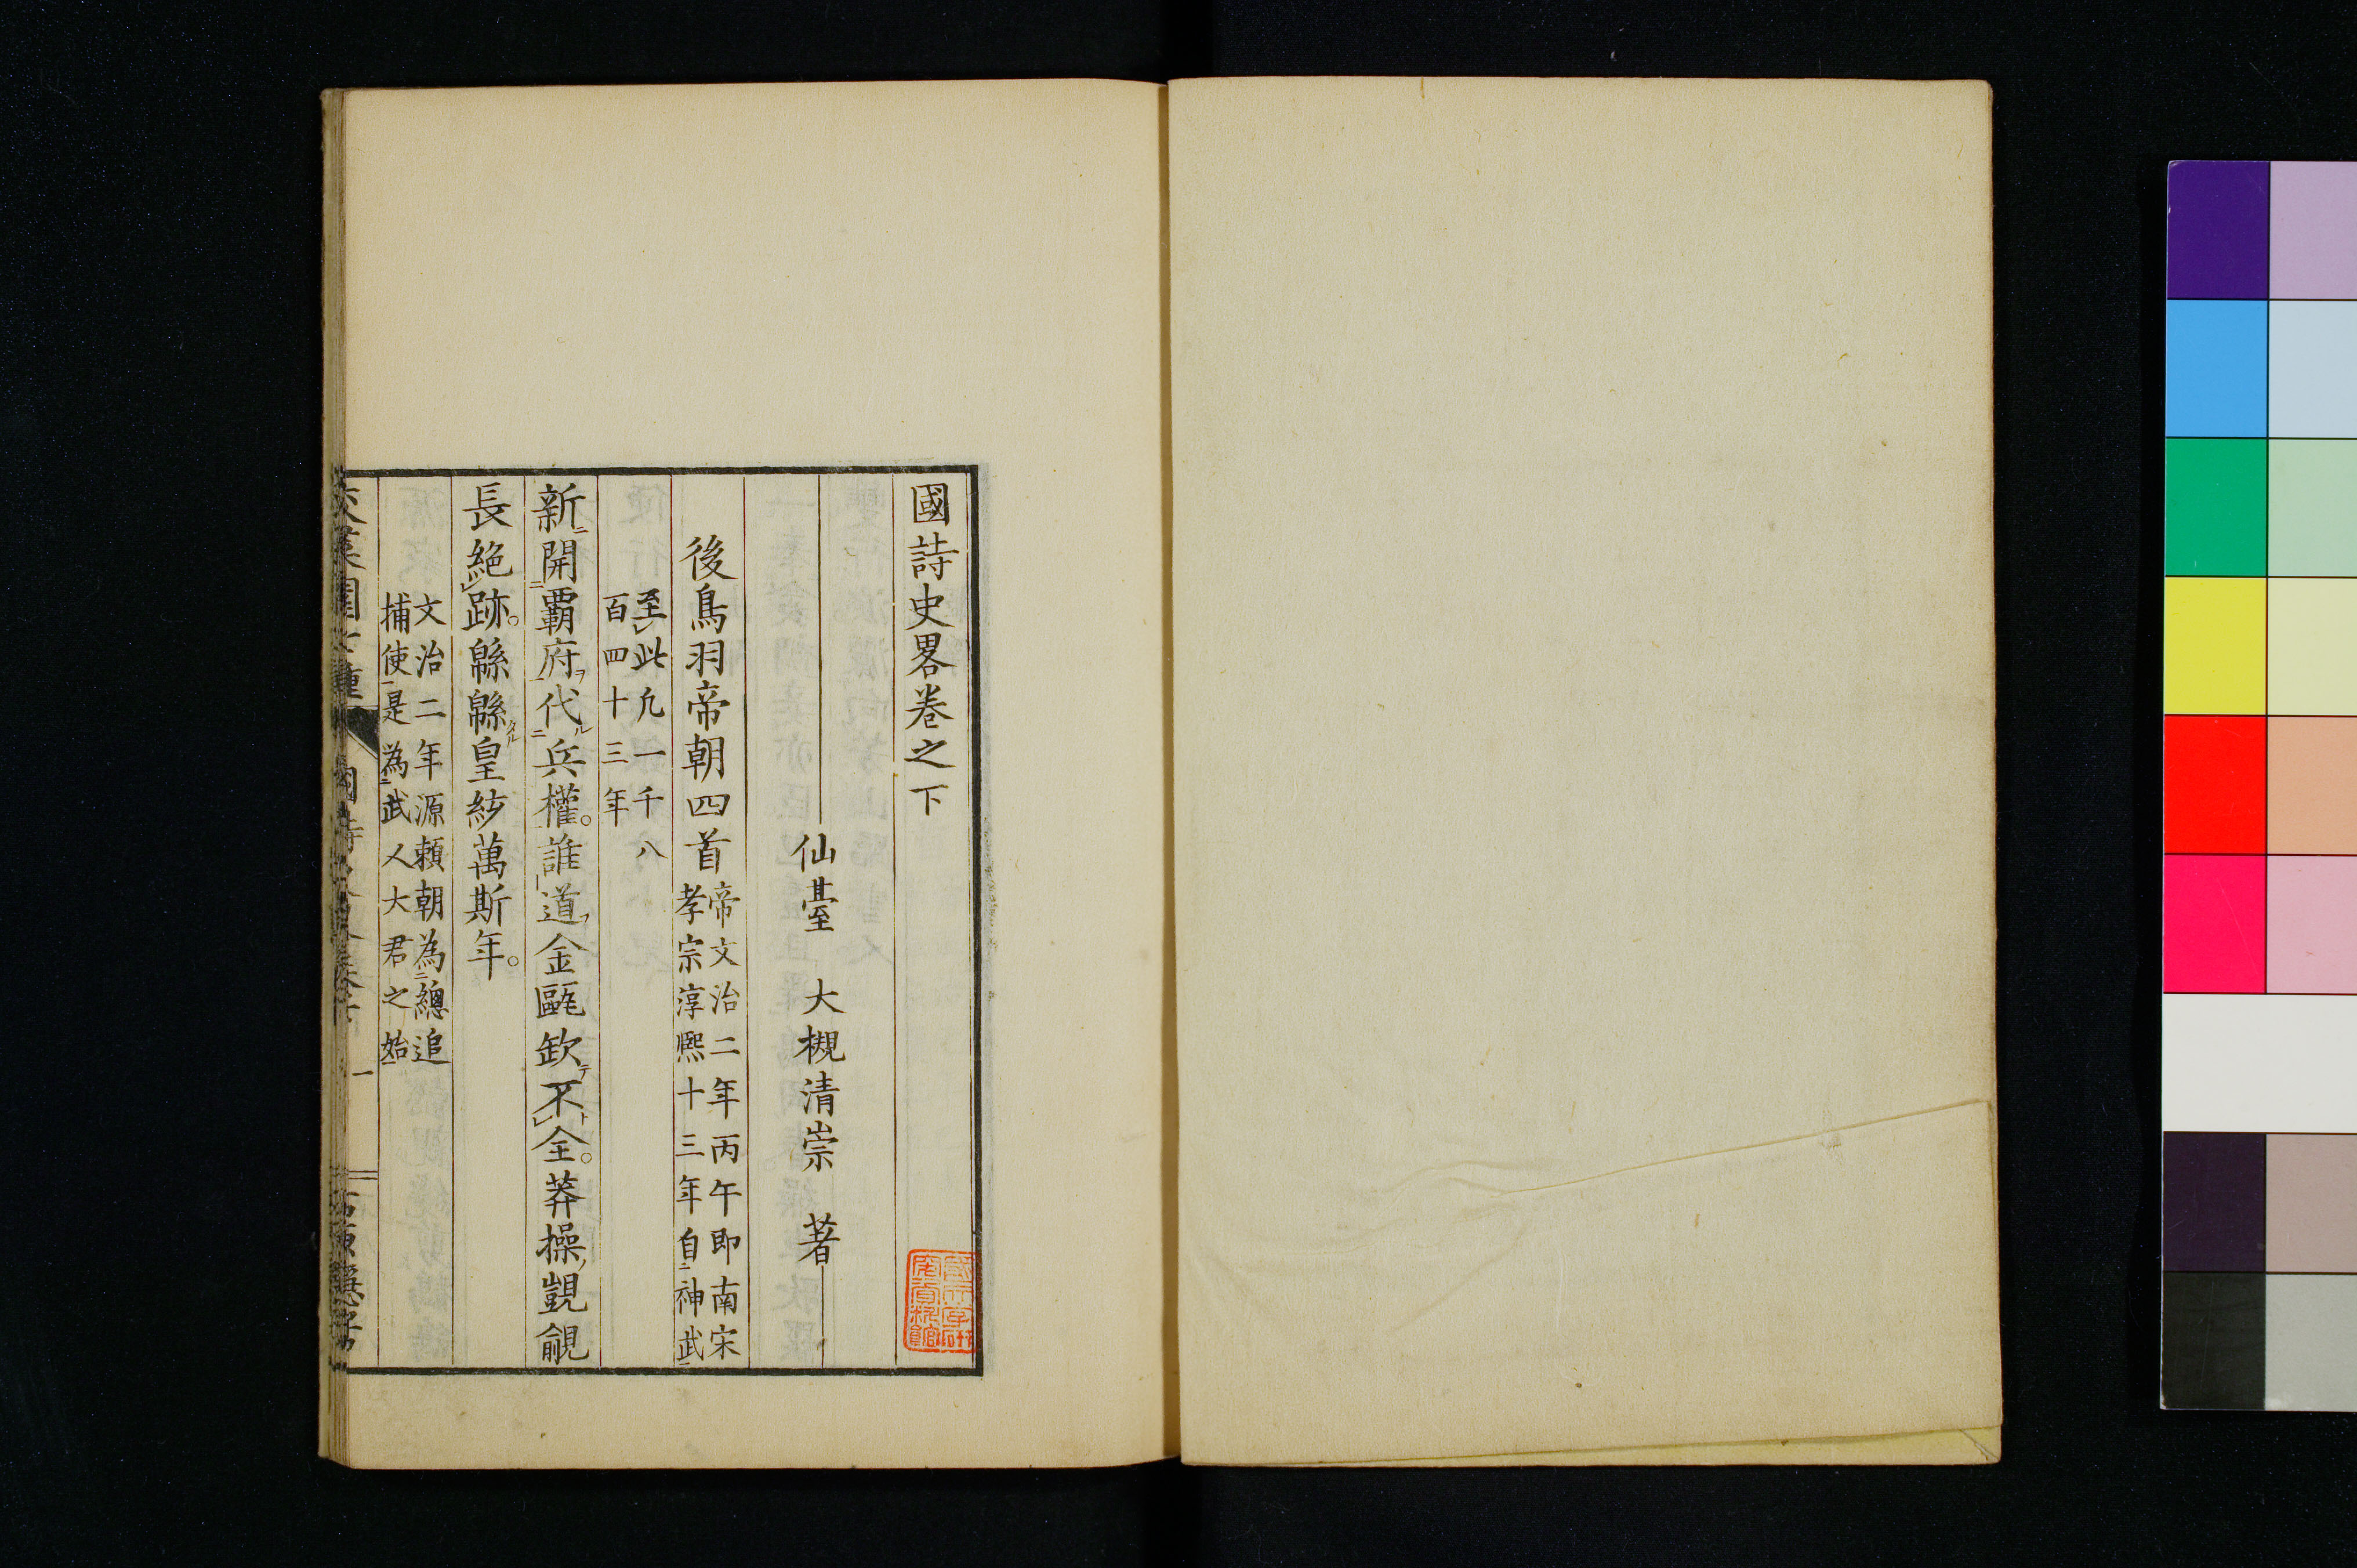 國詩史畧卷之下
仙臺 大槻清崇 著
後鳥羽帝朝四首帝文治二年丙午即南宋
孝宗淳熙十三年自神武
至此凡一千八
百四十三年
新開覇府代兵權。誰道金甌欽不全。莽操覬覦
長絶跡。緜緜皇紗萬斯年。
文治二年源頼朝為總追
捕使是為武人大君之始
國詩史畧卷下 一